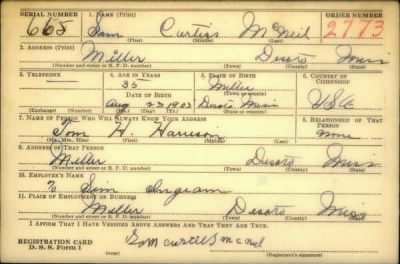 SERIAL NUMBER 1. NAME (Print) ORDER NUMBER
665 Sam Curtiss McNeil 2773
(First) (Middle) (Last)
2. ADDRESS (Print)
Miller Desoto Miss
(Number and street or R. F. D. number) (Town) (County) (State)
3. TELEPHONE 4. AGE IN YEARS 5. PLACE OF BIRTH 6. COUNTRY OF CITIZENSHIP
35 Miller
DATE OF BIRTH (Town or county)
Aug 23 1905 Desoto Miss USA
(Exchange) (Number) (Mo.) (Day) (Yr.) (State or country)
7. NAME OF PERSON WHO WILL ALWAYS KNOW YOUR ADDRESS 8. RELATIONSHIP OF THAT PERSON
Tom H. Harrison None
(Mr., Mrs., Miss) (First) (Middle) (Last)
9. ADDRESS OF THAT PERSON
Miller Desoto Miss
(Number and street or R. F. D. number) (Town) (County) (State)
10. EMPLOYER'S NAME
Sim Ingram
11. PLACE OF EMPLOYMENT OR BUSINESS
Miller Desoto Miss
(Number and street or R. F. D. number) (Town) (County) (State)
I AFFIRM THAT I HAVE VERIFIED ABOVE ANSWERS AND THAT THEY ARE TRUE.
REGISTRATION CARD
D. S. S. Form 1 (Registrant's signature)